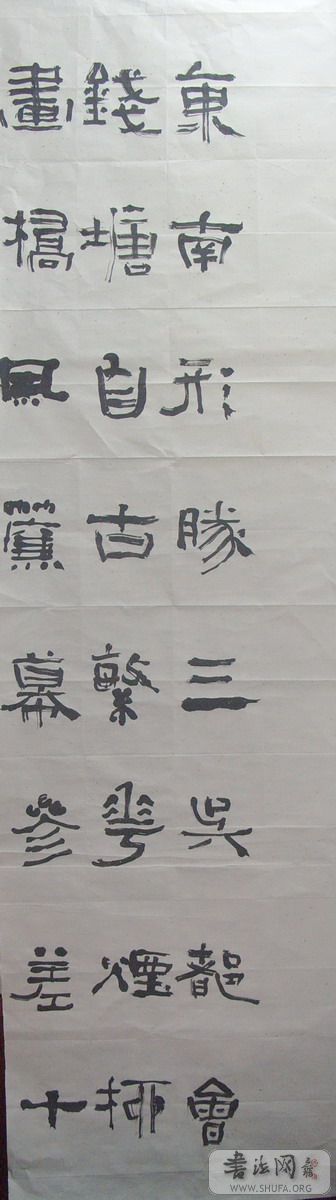 東南形勝三吳都會
錢塘自古繁華煙柳
畫橋風簾幕參差十
書法网
WWW.SHUFA.ORG